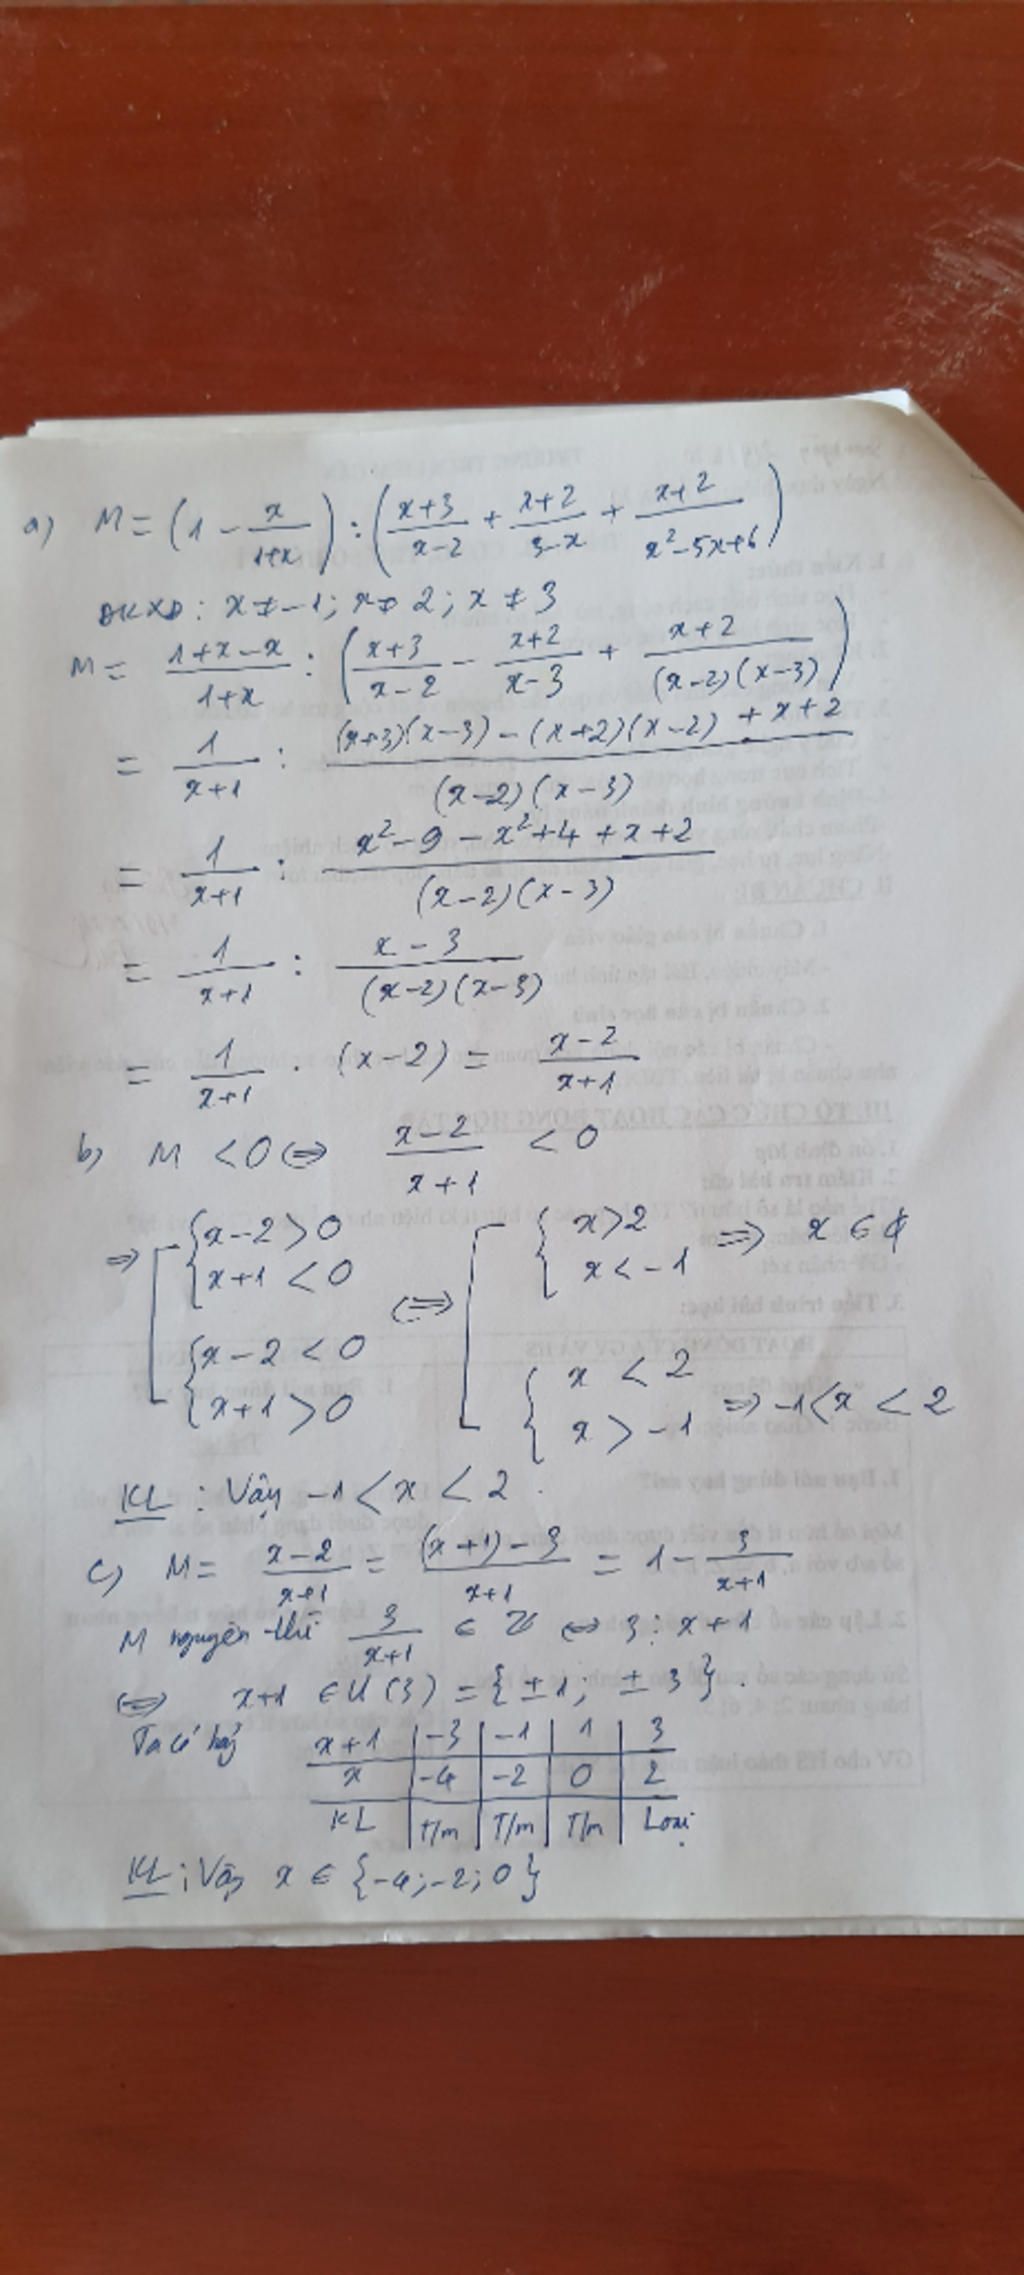 a) M = (1 - x/(1+x)) : ((x+3)/(x-2) + (x+2)/(3-x) + (x+2)/(x²-5x+6))
ĐKXĐ: x ≠ -1; x ≠ 2; x ≠ 3
M = (1+x-x)/(1+x) : ((x+3)/(x-2) - (x+2)/(x-3) + (x+2)/((x-2)(x-3)))
= 1/(x+1) : ((x+3)(x-3) - (x+2)(x-2) + x+2)/((x-2)(x-3))
= 1/(x+1) : (x²-9-x²+4+x+2)/((x-2)(x-3))
= 1/(x+1) : (x-3)/((x-2)(x-3))
= 1/(x+1) . (x-2) = (x-2)/(x+1)
b) M < 0 ⇔ (x-2)/(x+1) < 0
⇒ [ { x-2 > 0 ; x+1 < 0 ⇔ [ { x > 2 ; x < -1 ⇒ x ∈ ϕ
{ x-2 < 0 ; x+1 > 0 { x < 2 ; x > -1 ⇒ -1 < x < 2
KL: Vậy -1 < x < 2.
c) M = (x-2)/(x+1) = ((x+1)-3)/(x+1) = 1 - 3/(x+1)
M nguyên thì 3/(x+1) ∈ Z ⇔ 3 ⋮ x+1
⇔ x+1 ∈ Ư(3) = {±1; ±3}.
Ta có x+1 | -3 | -1 | 1 | 3
x | -4 | -2 | 0 | 2
KL | T/m | T/m | T/m | Loại
KL: Vậy x ∈ {-4; -2; 0}